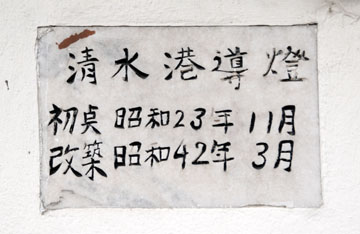 清水港導燈
初点 昭和23年 11月
改築 昭和42年 3月